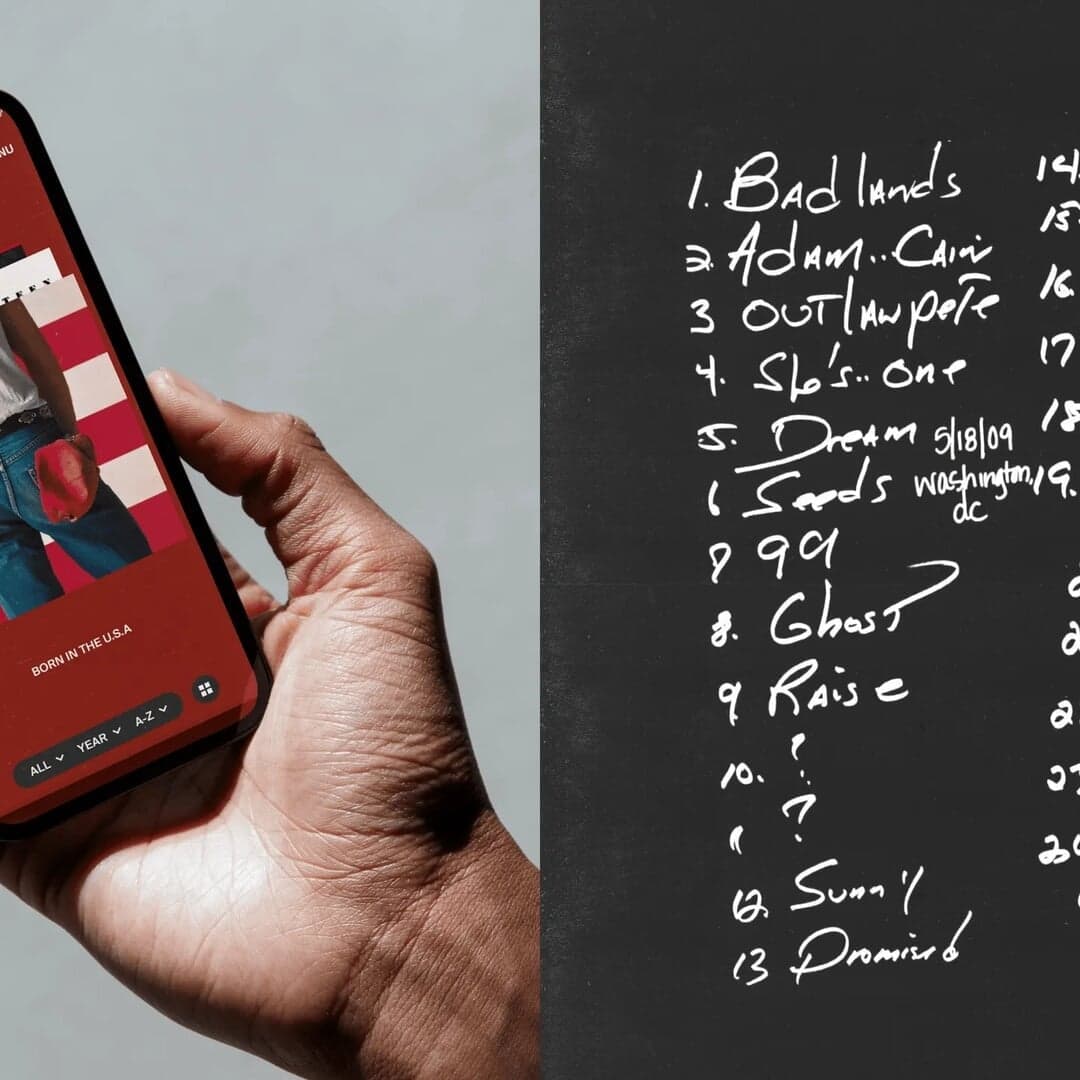 NU
BORN IN THE U.S.A
ALL YEAR A-Z
1. Badlands
2. Adam.. Cain
3 Outlaw Pete
4. She's.. One
5. Dream
5/18/09
Washington,
dc
6 Seeds
7 99
8. Ghost
9 Raise
10. ?
11 ?
12. Sunny
13 Promised
14.
15
16.
17
18
19.